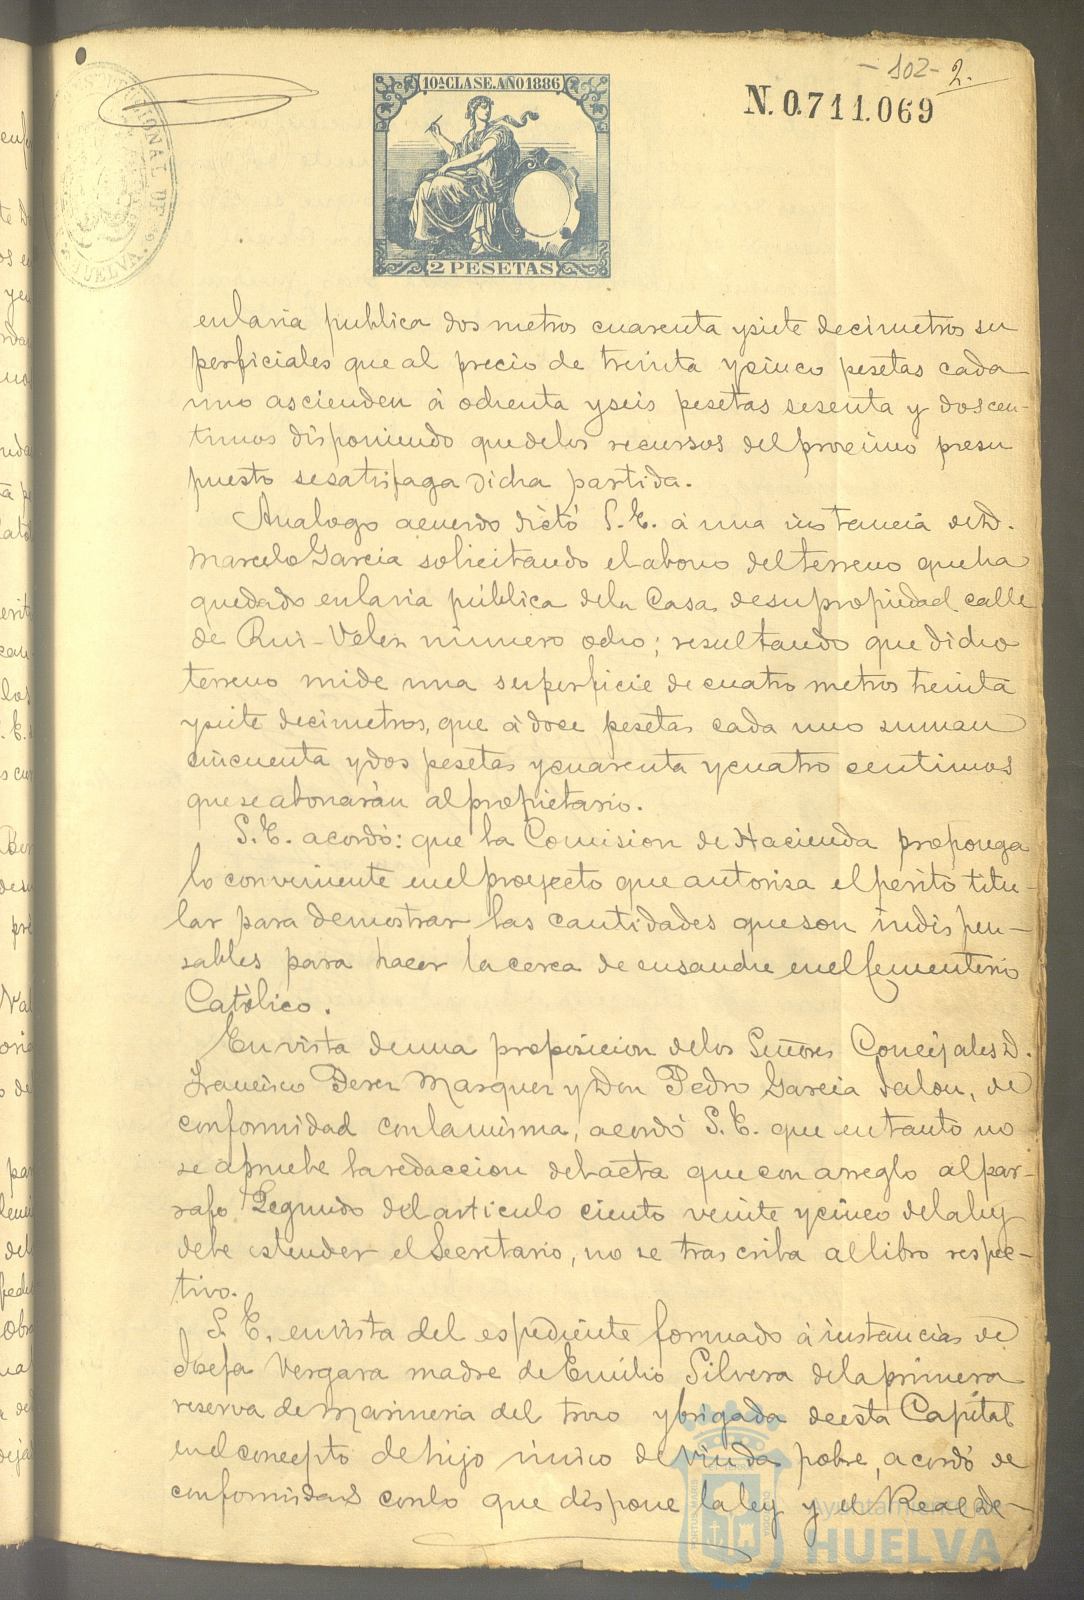 - 102 - 2.
10ª CLASE. AÑO 1886
N. 0.711.069
2 PESETAS
HUELVA
en la via publica dos metros cuarenta y siete decimetros su
perficiales que al precio de treinta y cinco pesetas cada
uno ascienden á ochenta y seis pesetas sesenta y dos cen-
timos disponiendo que de los recursos del procsimo presu
puesto se satisfaga dicha partida.
Analogo acuerdo dictó S. E. á una instancia de D.
Marcelo Garcia solicitando el abono del terreno que ha
quedado en la via pública de la Casa de su propiedad calle
de Rui-Velez número ocho; resultando que dicho
terreno mide una superficie de cuatro metros treinta
y siete decimetros, que á doce pesetas cada uno suman
cincuenta y dos pesetas y cuarenta y cuatro centimos
que se abonarán al propietario.
S. E. acordó: que la Comision de Hacienda proponga
lo conveniente en el proyecto que autoriza el perito titu-
lar para demostrar las cantidades que son indispen-
sables para hacer la cerca de ensanche en el Cementerio
Católico.
En vista de una proposicion de los Señores Concejales D.
Francisco Perez Marquez y Don Pedro Garcia Jalon, de
conformidad con la misma, acordó S. E. que en tanto no
se apruebe la redaccion del acta que con arreglo al par-
rafo Segundo del articulo ciento veinte y cinco de la ley
debe estender el Secretario, no se trascriba al libro respec-
tivo.
S. E. en vista del espediente formado á instancias de
Josefa Vergara madre de Emilio Silvera de la primera
reserva de Marineria del trozo y brigada de esta Capital
en el concepto de hijo único de viuda pobre, acordó de
conformidad con lo que dispone la ley y el Real De-
Ayuntamiento de
HUELVA